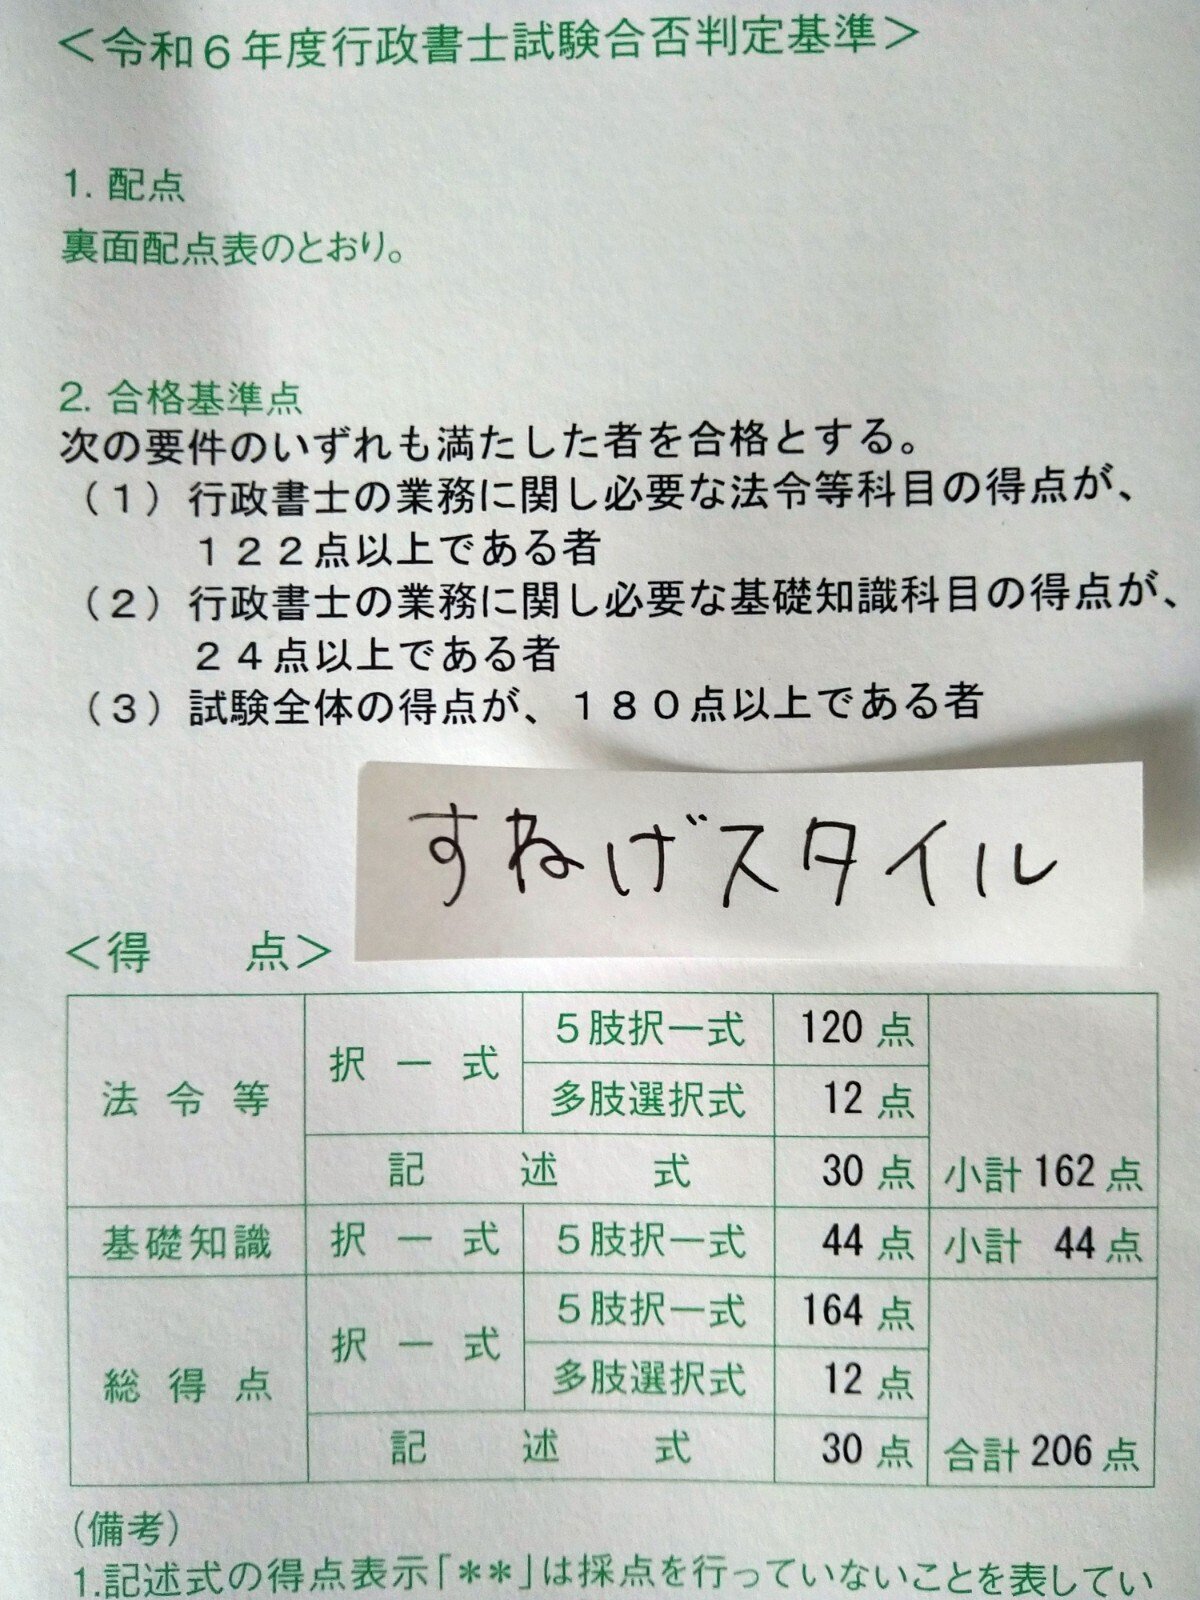 ＜令和６年度行政書士試験合否判定基準＞
1. 配点
裏面配点表のとおり。
2. 合格基準点
次の要件のいずれも満たした者を合格とする。
（１）行政書士の業務に関し必要な法令等科目の得点が、
１２２点以上である者
（２）行政書士の業務に関し必要な基礎知識科目の得点が、
２４点以上である者
（３）試験全体の得点が、１８０点以上である者
すねげスタイル
＜得　　点＞
法令等 択一式 ５肢択一式 120点
多肢選択式 12点
記述式 30点 小計162点
基礎知識 択一式 ５肢択一式 44点 小計 44点
総得点 択一式 ５肢択一式 164点
多肢選択式 12点
記述式 30点 合計206点
（備考）
1.記述式の得点表示「＊＊」は採点を行っていないことを表してい